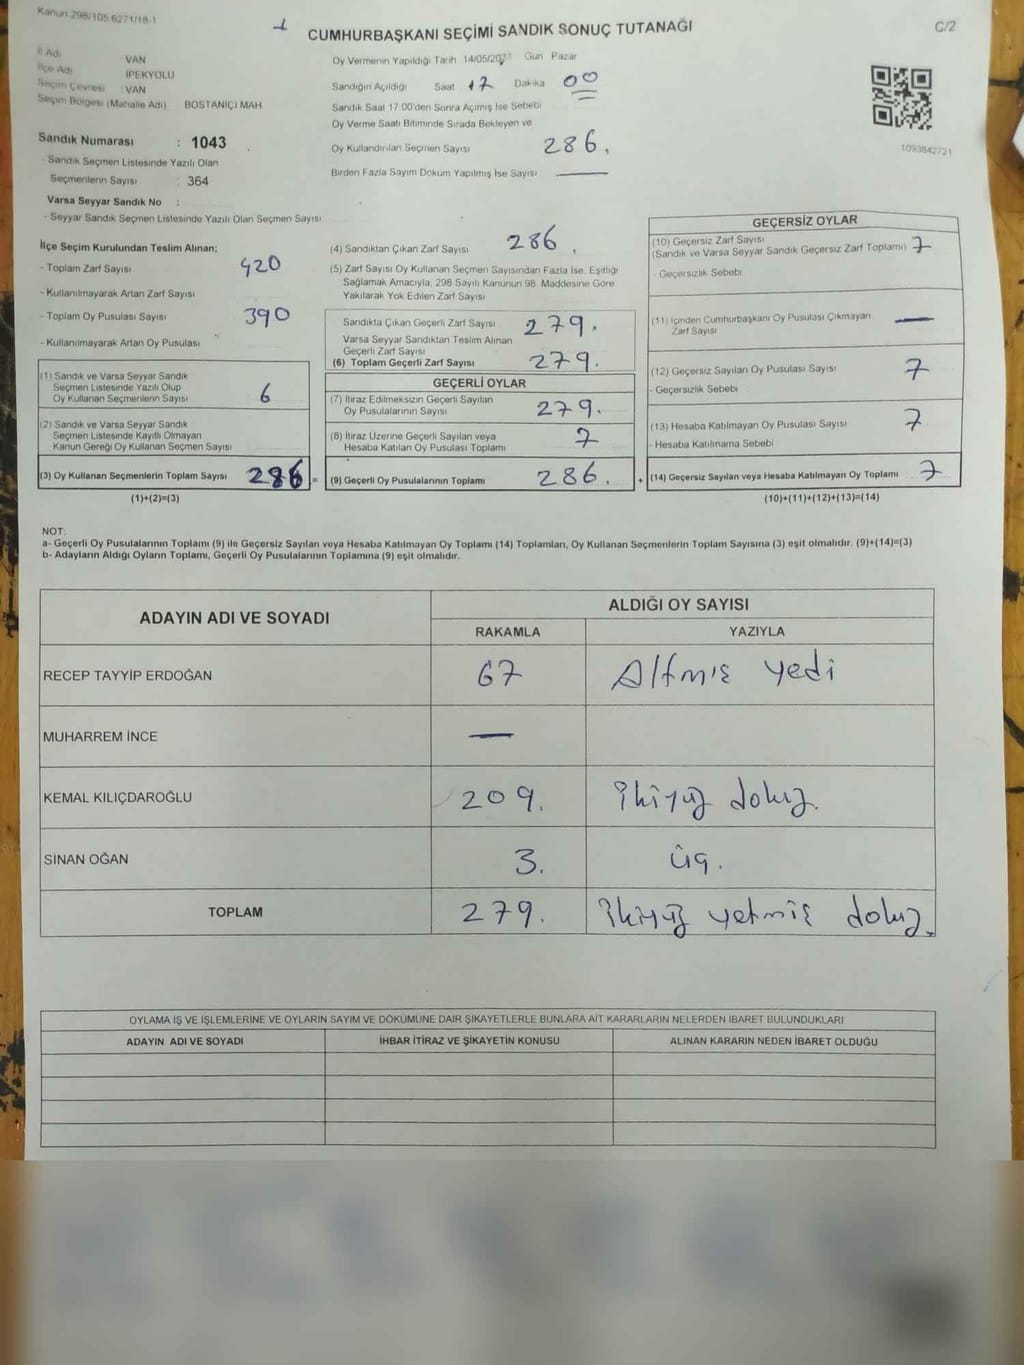 Kanun 298/105 6271/18-1
CUMHURBAŞKANI SEÇİMİ SANDIK SONUÇ TUTANAĞI
C/2
İl Adı VAN
İlçe Adı İPEKYOLU
Seçim Çevresi : VAN
Seçim Bölgesi (Mahalle Adı) BOSTANİÇİ MAH
Oy Vermenin Yapıldığı Tarih 14/05/2023 Gün Pazar
Sandığın Açıldığı Saat 17 Dakika 00
Sandık Saat 17:00'den Sonra Açımış İse Sebebi
Oy Verme Saati Bitiminde Sırada Bekleyen ve
Oy Kullandırılan Seçmen Sayısı 286.
Birden Fazla Sayım Döküm Yapılmış İse Sayısı —
1093842/21
Sandık Numarası : 1043
- Sandık Seçmen Listesinde Yazılı Olan
Seçmenlerin Sayısı : 364
Varsa Seyyar Sandık No :
- Seyyar Sandık Seçmen Listesinde Yazılı Olan Seçmen Sayısı
İlçe Seçim Kurulundan Teslim Alınan;
- Toplam Zarf Sayısı 420
- Kullanılmayarak Artan Zarf Sayısı
- Toplam Oy Pusulası Sayısı 390
- Kullanılmayarak Artan Oy Pusulası
(1) Sandık ve Varsa Seyyar Sandık
Seçmen Listesinde Yazılı Olup
Oy Kullanan Seçmenlerin Sayısı 6
(2) Sandık ve Varsa Seyyar Sandık
Seçmen Listesinde Kayıtlı Olmayan
Kanun Gereği Oy Kullanan Seçmen Sayısı
(3) Oy Kullanan Seçmenlerin Toplam Sayısı 286 =
(1)+(2)=(3)
(4) Sandıktan Çıkan Zarf Sayısı 286.
(5) Zarf Sayısı Oy Kullanan Seçmen Sayısından Fazla İse, Eşitliği
Sağlamak Amacıyla, 298 Sayılı Kanunun 98. Maddesine Göre
Yakılarak Yok Edilen Zarf Sayısı
Sandıkta Çıkan Geçerli Zarf Sayısı 279.
Varsa Seyyar Sandıktan Teslim Alınan
Geçerli Zarf Sayısı
(6) Toplam Geçerli Zarf Sayısı 279.
GEÇERLİ OYLAR
(7) İtiraz Edilmeksizin Geçerli Sayılan
Oy Pusulalarının Sayısı 279.
(8) İtiraz Üzerine Geçerli Sayılan veya
Hesaba Katılan Oy Pusulası Toplamı 7
(9) Geçerli Oy Pusulalarının Toplamı 286. +
GEÇERSİZ OYLAR
(10) Geçersiz Zarf Sayısı
(Sandık ve Varsa Seyyar Sandık Geçersiz Zarf Toplamı) 7
- Geçersizlik Sebebi
(11) İçinden Cumhurbaşkanı Oy Pusulası Çıkmayan
Zarf Sayısı —
(12) Geçersiz Sayılan Oy Pusulası Sayısı 7
- Geçersizlik Sebebi
(13) Hesaba Katılmayan Oy Pusulası Sayısı 7
- Hesaba Katılmama Sebebi
(14) Geçersiz Sayılan veya Hesaba Katılmayan Oy Toplamı 7
(10)+(11)+(12)+(13)=(14)
NOT:
a- Geçerli Oy Pusulalarının Toplamı (9) ile Geçersiz Sayılan veya Hesaba Katılmayan Oy Toplamı (14) Toplamları, Oy Kullanan Seçmenlerin Toplam Sayısına (3) eşit olmalıdır. (9)+(14)=(3)
b- Adayların Aldığı Oyların Toplamı, Geçerli Oy Pusulalarının Toplamına (9) eşit olmalıdır.
ADAYIN ADI VE SOYADI ALDIĞI OY SAYISI
RAKAMLA YAZIYLA
RECEP TAYYİP ERDOĞAN 67 Altmış yedi
MUHARREM İNCE —
KEMAL KILIÇDAROĞLU 209. ikiyüz dokuz.
SİNAN OĞAN 3. üç.
TOPLAM 279. ikiyüz yetmiş dokuz.
OYLAMA İŞ VE İŞLEMLERİNE VE OYLARIN SAYIM VE DÖKÜMÜNE DAİR ŞİKAYETLERLE BUNLARA AİT KARARLARIN NELERDEN İBARET BULUNDUKLARI
ADAYIN ADI VE SOYADI İHBAR İTİRAZ VE ŞİKAYETİN KONUSU ALINAN KARARIN NEDEN İBARET OLDUĞU